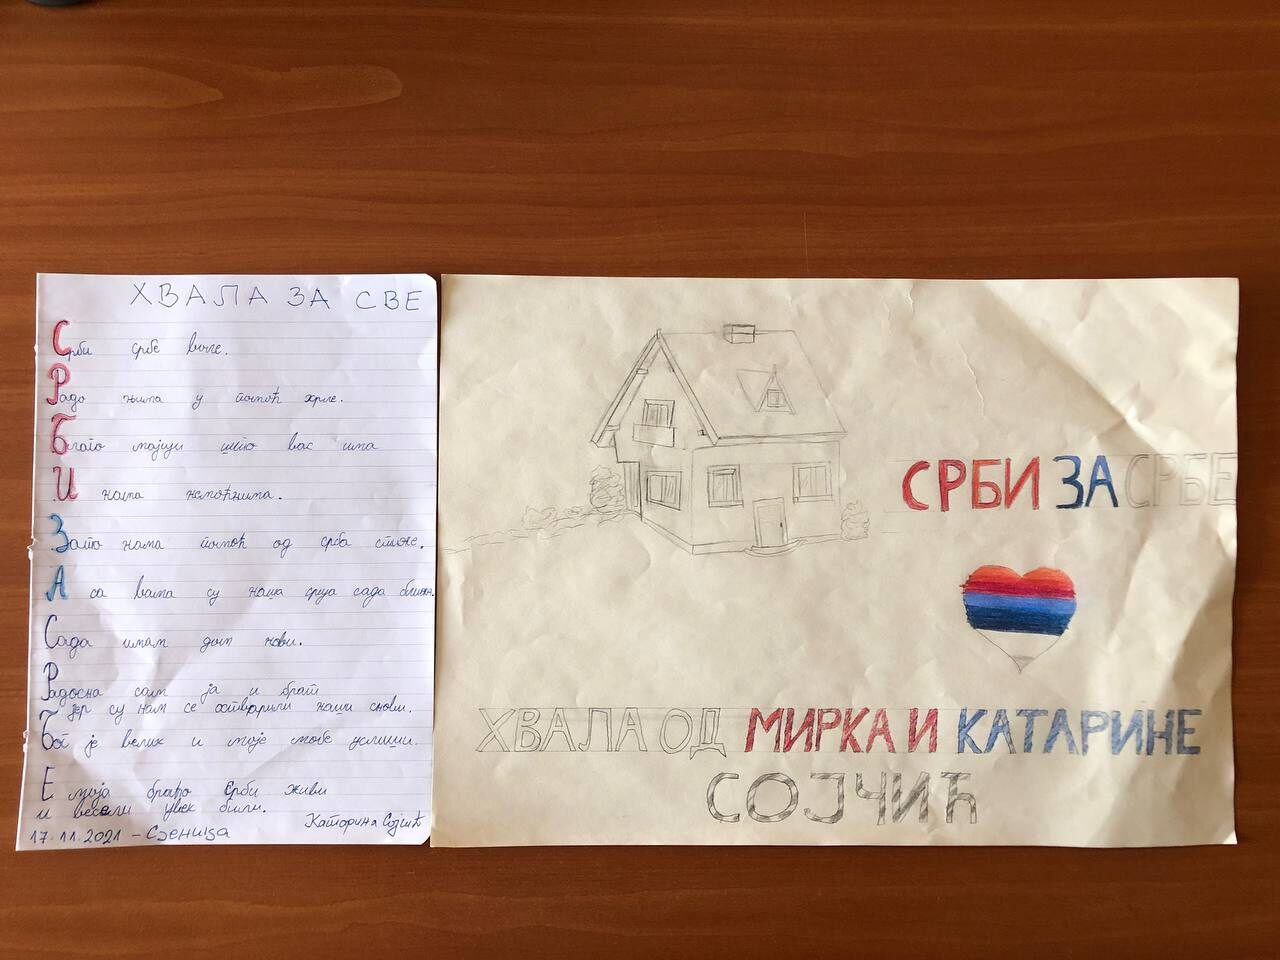 ХВАЛА ЗА СВЕ
Срби србе воле.
Радо њима у помоћ хрле.
Благо мајци што вас има
И нама немоћнима.
Зашто нама помоћ од срба стиже.
А са вама су наша срца сада ближа.
Сада имам дом нови.
Радосна сам ја и брат
јер су нам се остварили наши снови.
Бог је велик и моје молбе услиши.
Е моја браћо Срби живи
и весели увек били.
17.11.2021 - Сјеница
Катарина Сојчић
СРБИ ЗА СРБЕ
ХВАЛА ОД МИРКА И КАТАРИНЕ
СОЈЧИЋ